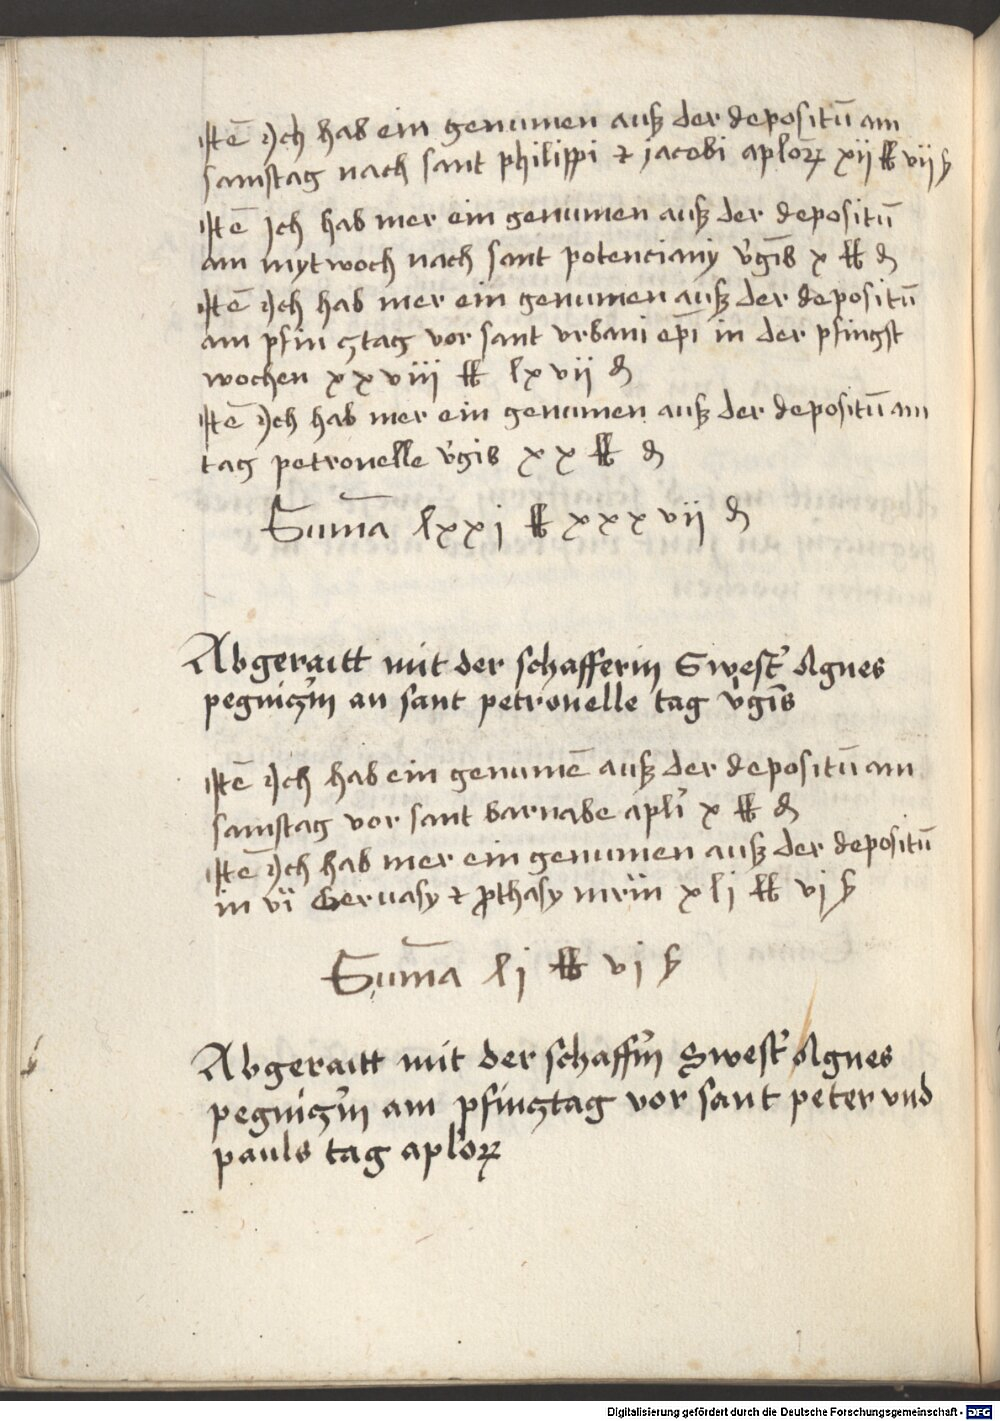 Itē Ich hab ein genumen auß der depositū am
samstag nach sant philippi et jacobi aploꝝ xij ℔ vij ß
Itē Ich hab mer ein genumen auß der depositū
am mytwoch nach sant potenciany v̓gīs x ℔ ₰
Itē Ich hab mer ein genumen auß der depositū
am pfincztag vor sant vrbani epī in der pfingst
wochen xxviii ℔ lxvii ₰
Itē Ich hab mer ein genumen auß der depositū am
tag petronelle v̓gīs xx ℔ ₰
Sum̄a lxxj ℔ xxxvij ₰
Abgeraitt mit der schafferin Swest̓ Agnes
pegnicz̓in an sant petronelle tag v̓gīs
Itē Ich hab ein genumē auß der depositū am
samstag vor sant barnabe apl̓i x ℔ ₰
Itē Ich hab mer ein genumen auß der depositū
in vi̓ Geruasy et ꝓthasy mr̄in xlj ℔ vj ß
Sum̄a lj ℔ vj ß
Abgeraitt mit der schaff̓in Swest̓ Agnes
pegnicz̓in am pfincztag vor sant peter vnd
pauls tag aploꝝ
Digitalisierung gefördert durch die Deutsche Forschungsgemeinschaft - DFG